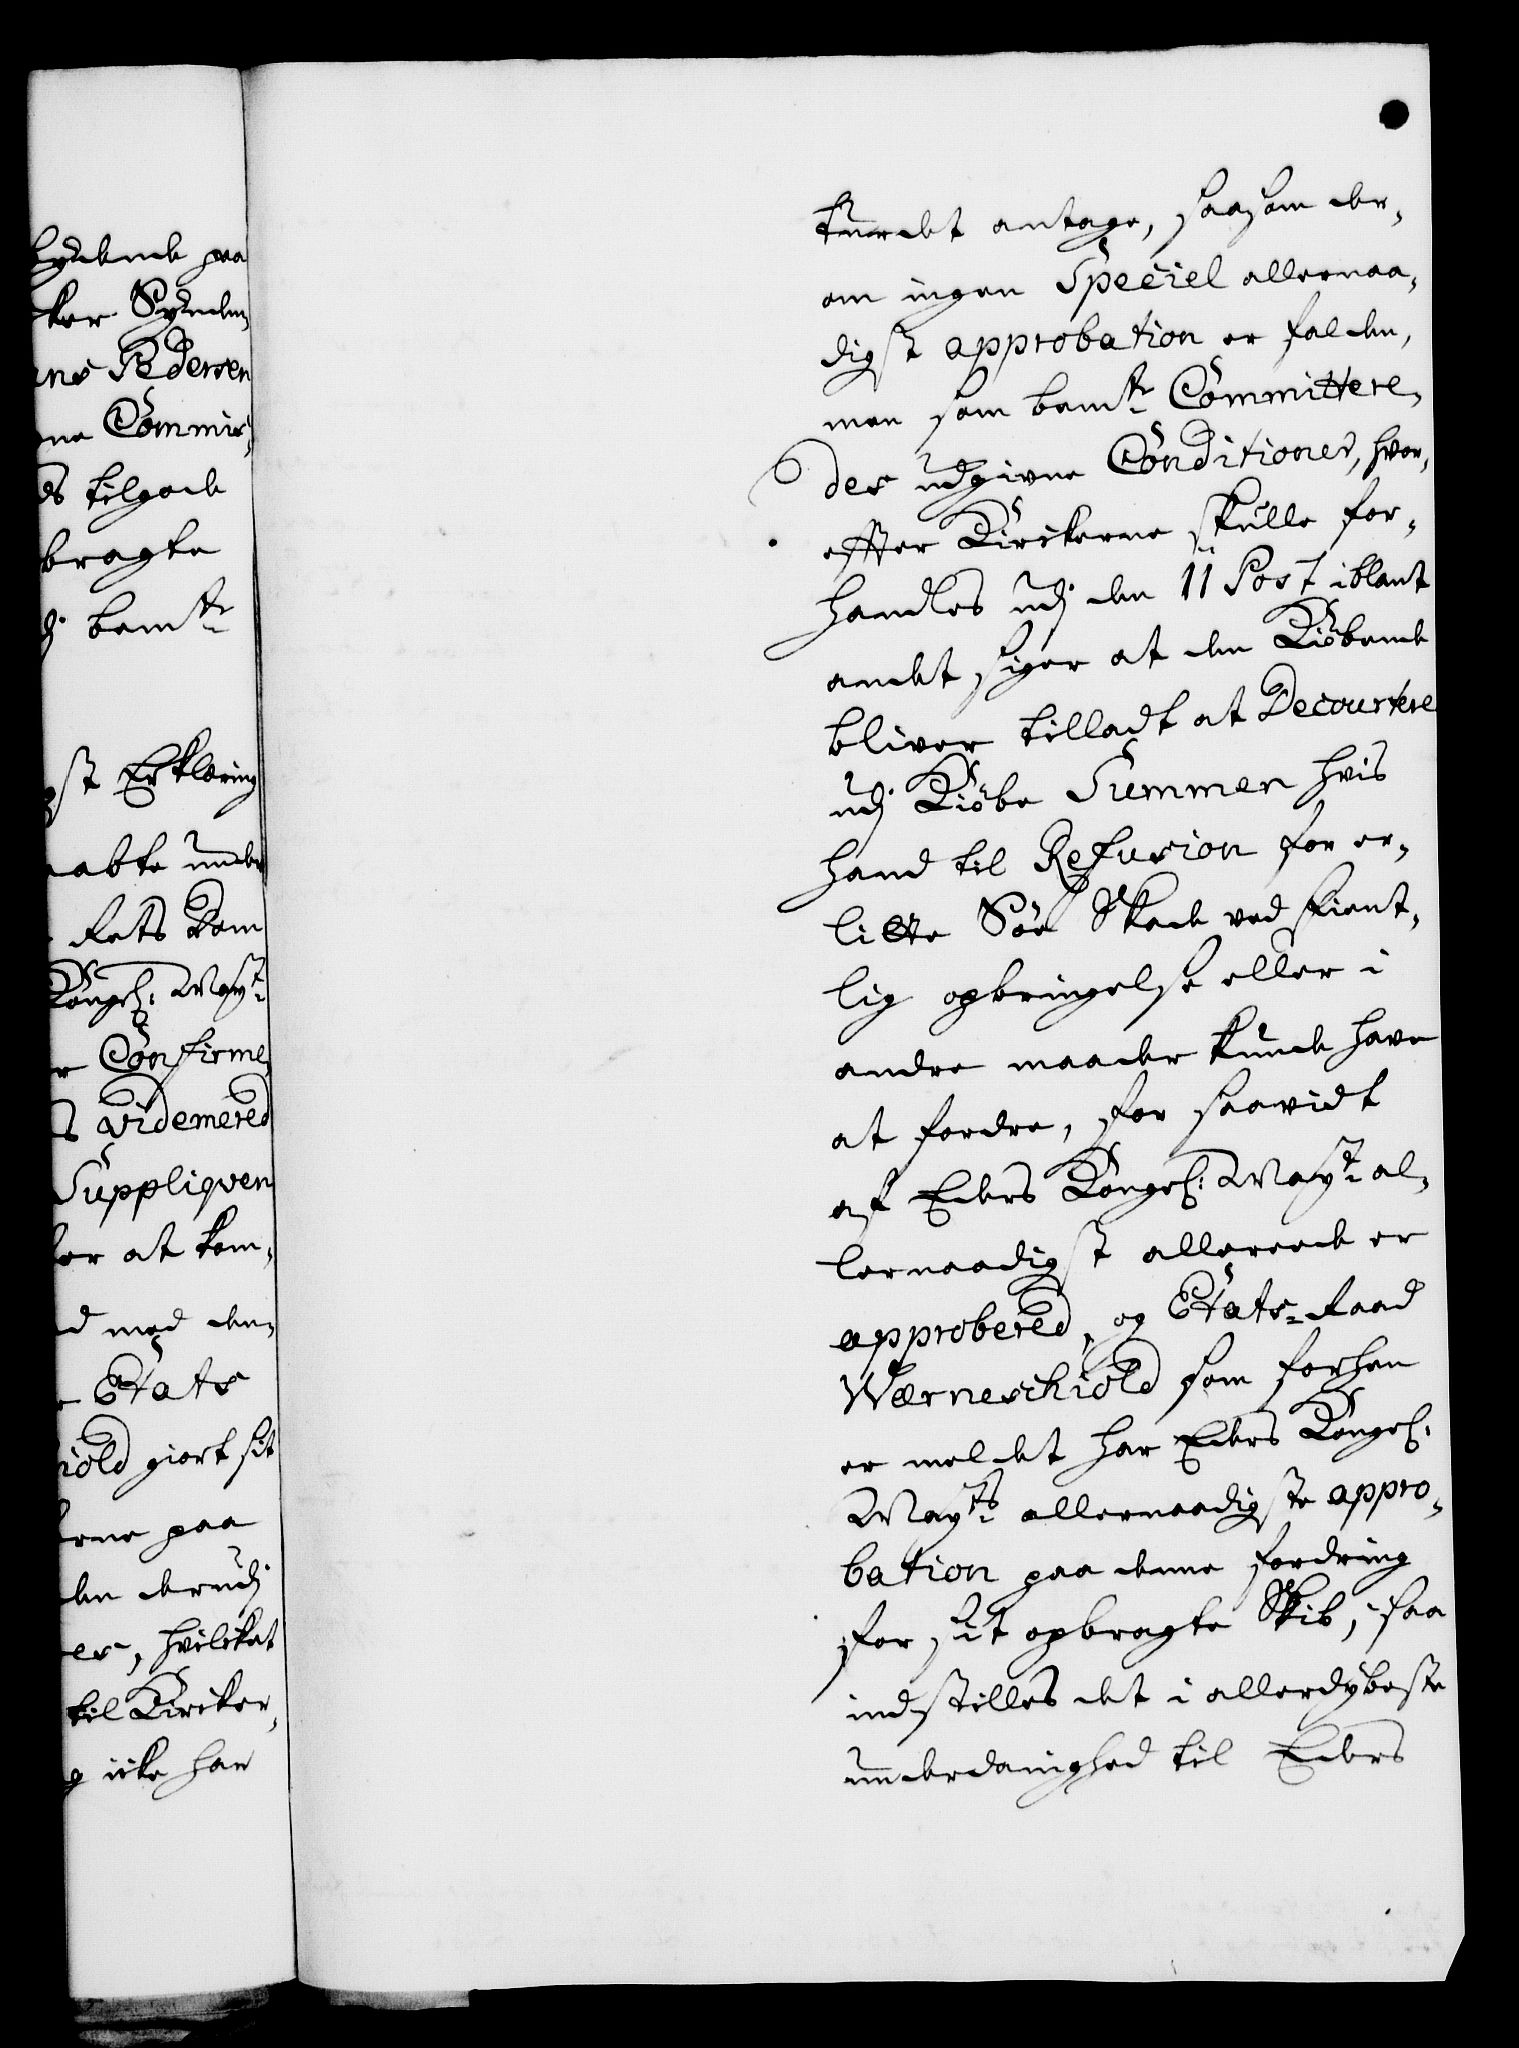 lydende paa
ker Synden,
ns Pedersen
ne Commis,
ds tilgode
bragte
dj bemte
st Erklæring
aabte under
Rets Dom
Kongel: Mayt:
r Confirme,
s videmered
Suppliqven
ler at kom,
d med den,
Etats
iold giort sit
erne paa
den derudj
er, hvilcket
til Kircker,
g icke har
turdet antage, saasom der,
om ingen Speciel allernaa,
digst approbation er falden,
men som bemte Committere,
des udgivne Conditioner, hvor,
effter Kirckerne skulle for,
handles udj den 11 Post iblant
andet siger at den Kiöbende
bliver tilladt at Decourtere
udj Kiöbe Summen hvis
hand til Refusion for er,
litte Söe Skade ved fient,
lig opbringelse eller i
andre maader kunde have
at fordre, for saavidt
af Eders Kongel: Mayt: al,
lernaadigst allereede er
approbered, og Etats-Raad
Wærneschiold som forhen
er meldet har Eders Kongel:
Mayts: allernaadigste appro,
bation paa denne fordring
for sit opbragte Skib, saa
indstilles det i allerdybeste
underdanighed til Eders